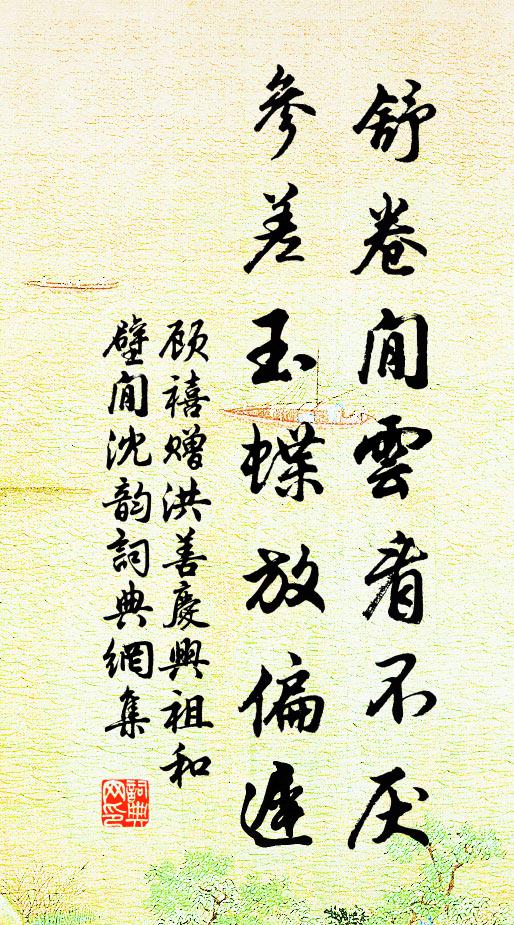 舒卷閒雲看不厌
參差玉蝶放偏遲
顾禧赠洪善慶興祖和
壁閒沈韵詞典網集
詞典网印